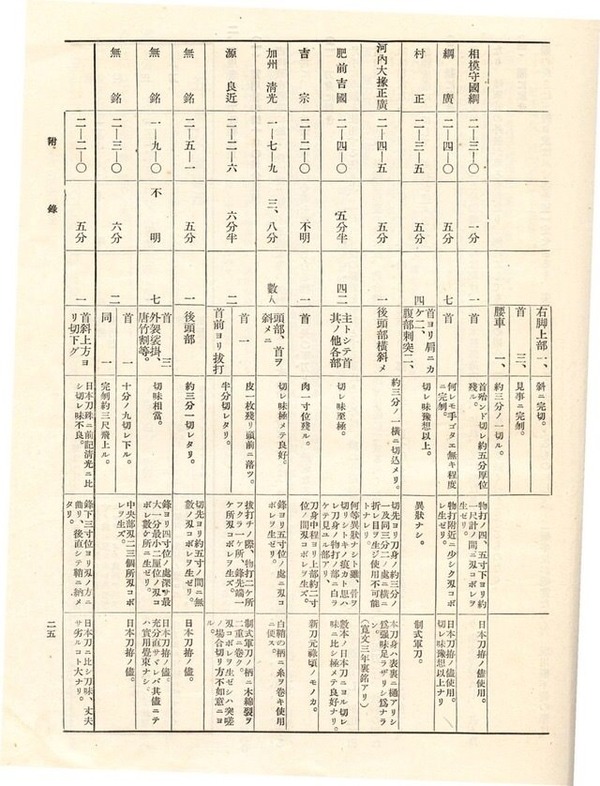 右脚上部 一、
首 三、
腰車 一、
斜ニ完切。
見事ニ完刎。
約三分ノ一切。
相模守國綱
二―三―〇
一分
一
首
首殆ンド切レ約五分厚位
殘ル。
物打ノ四、五寸下ヨリ約
一尺計ノ間ニ刄コボレ
ゼリ。
日本刀拵ノ儘使用。
綱廣
二―四―〇
五分
七
首
何レモ手ゴタエ無キ程度
ニ完刎。
物打附近ニ少シク刄コボ
レ生ゼリ。
日本刀拵ノ儘使用。
切レ味豫想以上ナリ
村正
二―三―五
五分
四
首ヨリ肩ニカ
ケ二、
腹部刺突二、
切レ味豫想以上。
異狀ナシ。
制式軍刀。
河內大掾正廣
二―四―五
五分
一
後頭部橫斜メ
約三分ノ一橫ニ切込メリ。
切先ヨリ刀身ノ約三分ノ
一及同三分二ノ處ニ橫ニ
折レ目ヲ生ジ使用不可能
トナレリ。
本刀身ハ表裏ニ樋アリシ
爲强味足ラザリシ爲ナラ
ン。
(寬文三年裏銘アリ)
肥前吉國
二―四―〇
五分半
四二
主トシテ首
其ノ他各部
切レ味至極。
何等異狀ナシト雖、骨ヲ
切リシトキノ痕カト思ハ
レ刀身ノ物打ノ部ニ白ラ
ケテ見ユル部アリ
數本ノ日本刀ニヨル切レ
味ニ比シ極メテ良好ナリ。
吉宗
二―二―〇
不明
一
首
肉一寸位殘ル。
刀身中程ヨリ上部約二寸
位ノ間刄コボレヲ生ズ。
新刀元祿頃ノモノカ。
加州淸光
一―七―九
三、八分
數人
頭部、首ヲ
斜メニ
切レ味極メテ良好。
鋒ヨリ五寸位ノ處ニ刄コ
ボレヲ生ゼリ。
白鞘ノ柄ニ糸ヲ卷キ使用
ニ便ス。
源良近
二―二―六
六分半
二
首 一
首前ヨリ拔打
皮一枚殘リ頭前ニ落ツ。
半分切レタリ。
拔打チノ際、物打二ケ所
フクラ一ケ所、鋒先端一
ケ所刄コボレヲ生ズ。
制式軍刀ノ柄ニ木綿裂ヲ
二重ニ卷ク。
刄コボレヲ生ゼシハ突嗟
ノ場合切リ方不如意ニヨ
ル。
無銘
二―五―一
五分
一
後頭部
約三分一切レタリ。
切先ヨリ約五寸ノ間ニ無
數ノ刄コボレヲ生ゼリ。
日本刀拵ノ儘。
無銘
一―九―〇
不明
七
首 三
外袈裟掛、
唐竹割等。
切味相當。
鋒ヨリ四寸位ノ處深サ最
大一分最小二厘位ノ刄コ
ボレ數ケ所ニ生ゼリ。
日本刀拵ノ儘。
充分直サザレバ其儘ニテ
ハ實用覺束ナシ。
無銘
二―三―〇
六分
二
首 一
同 一
十分ノ九切レ下ル。
完刎約三尺飛上ル。
中央部刄二三個所刄コボ
レヲ生ズ。
日本刀拵ノ儘。
二―二―〇
五分
一
首斜上方ヨ
リ切下グ
日本刀殊ニ前記淸光ニ比
シ切レ味不良。
鋒下三寸位ヨリ刄ノ方ニ
曲リ、後直シテ鞘ニ納メ
タリ。
日本刀ニ比シ刀味、丈夫
サ劣ルコト大ナリ。
附錄
二五